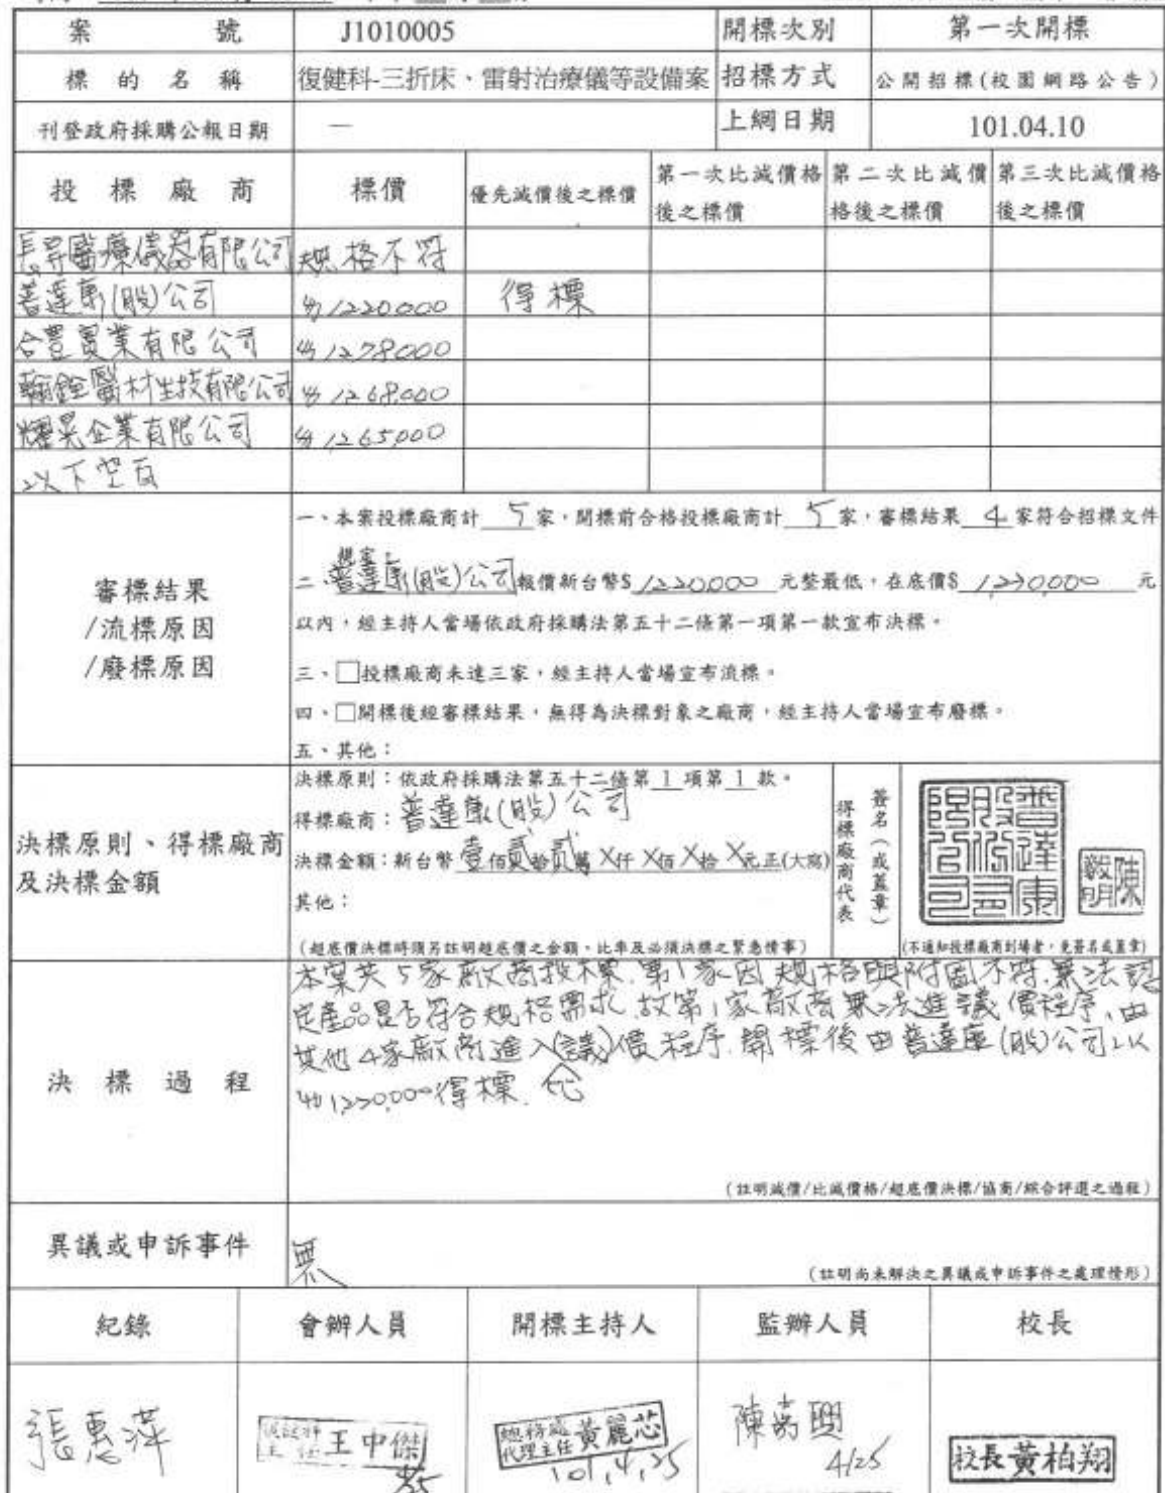 案號 J1010005 開標次別 第一次開標
標的名稱 復健科-三折床、雷射治療儀等設備案 招標方式 公開招標(校園網路公告)
刊登政府採購公報日期 — 上網日期 101.04.10
投標廠商 標價 優先減價後之標價 第一次比減價格後之標價 第二次比減價格後之標價 第三次比減價格後之標價
長昇醫療儀器有限公司 規格不符
普達康(股)公司 1220000 得標
合豐實業有限公司 1278000
翰銓醫材生技有限公司 1268000
耀晃企業有限公司 1265000
以下空白
審標結果
/流標原因
/廢標原因
一、本案投標廠商計 5 家,開標前合格投標廠商計 5 家,審標結果 4 家符合招標文件
二、普達康(股)公司報價新台幣$ 1220000 元整最低,在底價$ 1,230,000 元
以內,經主持人當場依政府採購法第五十二條第一項第一款宣布決標。
三、□投標廠商未達三家,經主持人當場宣布流標。
四、□開標後經審標結果,無得為決標對象之廠商,經主持人當場宣布廢標。
五、其他:
決標原則、得標廠商
及決標金額
決標原則:依政府採購法第五十二條第 1 項第 1 款。
得標廠商:普達康(股)公司
決標金額:新台幣 壹佰貳拾貳萬 X仟 X佰 X拾 X元正(大寫)
其他:
(超底價決標時須另註明超底價之金額、比率及必須決標之緊急情事)
得標廠商代表
簽名(或蓋章)
普達康股份有限公司
陳毅明
(不通知投標廠商到場者,免簽名或蓋章)
決標過程
本案共5家廠商投標.第1家因規格與附圖不符.無法認
定產品是否符合規格需求.故第1家廠商無法進議價程序,由
其他4家廠商進入(議)價程序.開標後由普達康(股)公司以
1,220,000得標.
(註明減價/比減價格/超底價決標/協商/綜合評選之過程)
異議或申訴事件 無
(註明尚未解決之異議或申訴事件之處理情形)
紀錄 會辦人員 開標主持人 監辦人員 校長
張惠萍
復健科主任 王中傑
總務處代理主任 黃麗芯
101,4,25
陳嘉興
4/25
校長黃柏翔